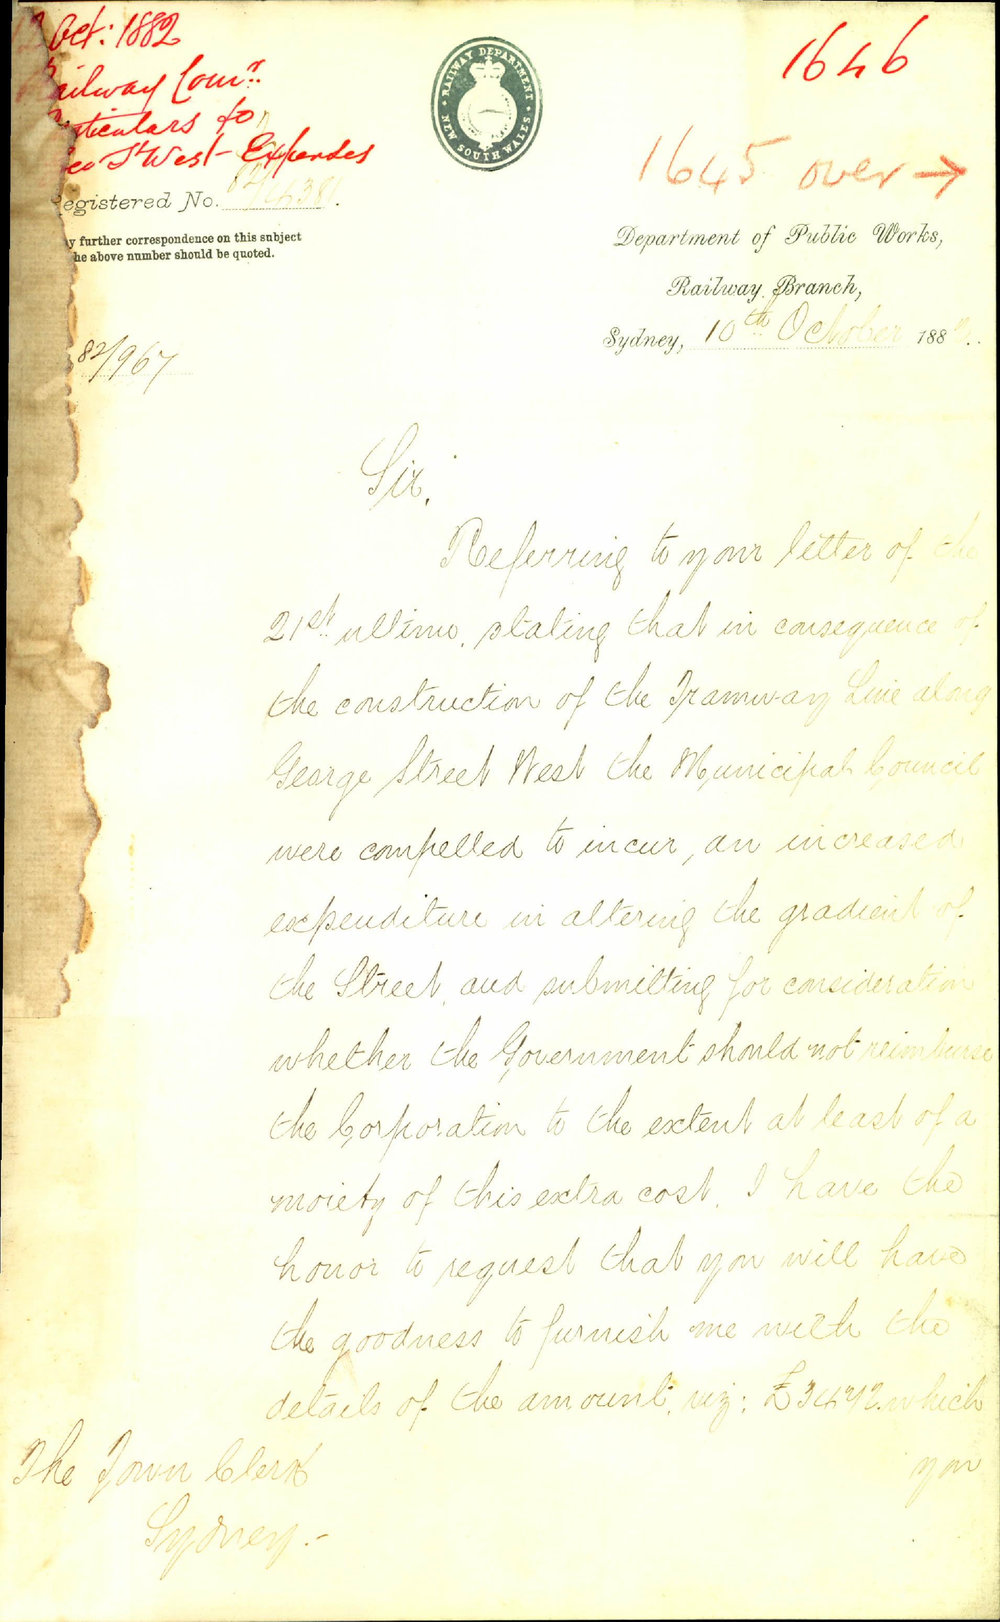 Oct: 1882
Railway Comr
Particulars fo
Geo St West Expenses
Registered No. 82/14381.
y further correspondence on this subject
he above number should be quoted.
82/967
RAILWAY DEPARTMENT
NEW SOUTH WALES
1646
1645 over →
Department of Public Works,
Railway Branch,
Sydney, 10th October 188
Sir,
Referring to your letter of the
21st ultimo, stating that in consequence of
the construction of the Tramway Line along
George Street West the Municipal Council
were compelled to incur, an increased
expenditure in altering the gradient of
the Street, and submitting for consideration
whether the Government should not reimburse
the Corporation to the extent at least of a
moiety of this extra cost. I have the
honor to request that you will have
the goodness to furnish me with the
details of the amount, viz: £3472 which
you
The Town Clerk
Sydney.-